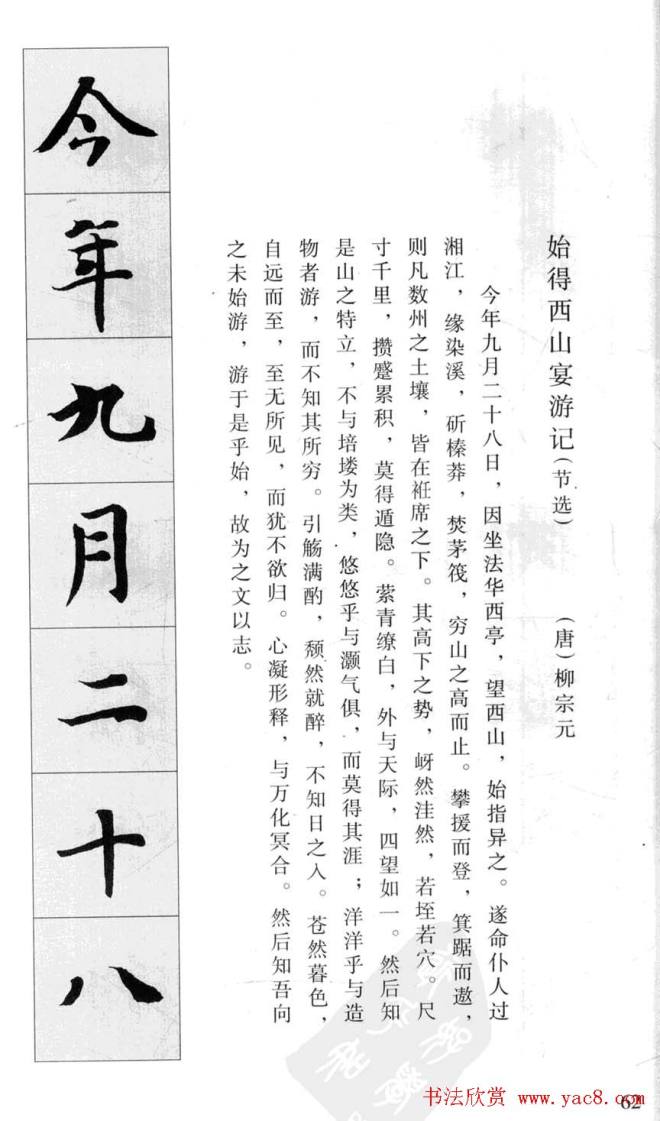 始得西山宴游记（节选）　（唐）柳宗元
今年九月二十八日，因坐法华西亭，望西山，始指异之。遂命仆人过
湘江，缘染溪，斫榛莽，焚茅筏，穷山之高而止。攀援而登，箕踞而遨，
则凡数州之土壤，皆在袵席之下。其高下之势，岈然洼然，若垤若穴。尺
寸千里，攒蹙累积，莫得遁隐。萦青缭白，外与天际，四望如一。然后知
是山之特立，不与培塿为类，悠悠乎与灏气俱，而莫得其涯；洋洋乎与造
物者游，而不知其所穷。引觞满酌，颓然就醉，不知日之入。苍然暮色，
自远而至，至无所见，而犹不欲归。心凝形释，与万化冥合。然后知吾向
之未始游，游于是乎始，故为之文以志。
今年九月二十八
书法欣赏 www.yac8.com
62